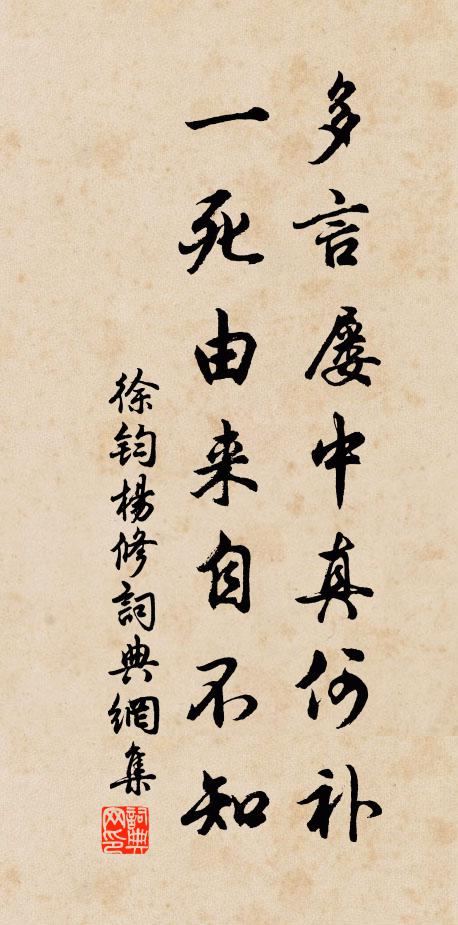 多言屡中真何补
一死由来自不知
徐钧杨修詞典網集
詞典网印